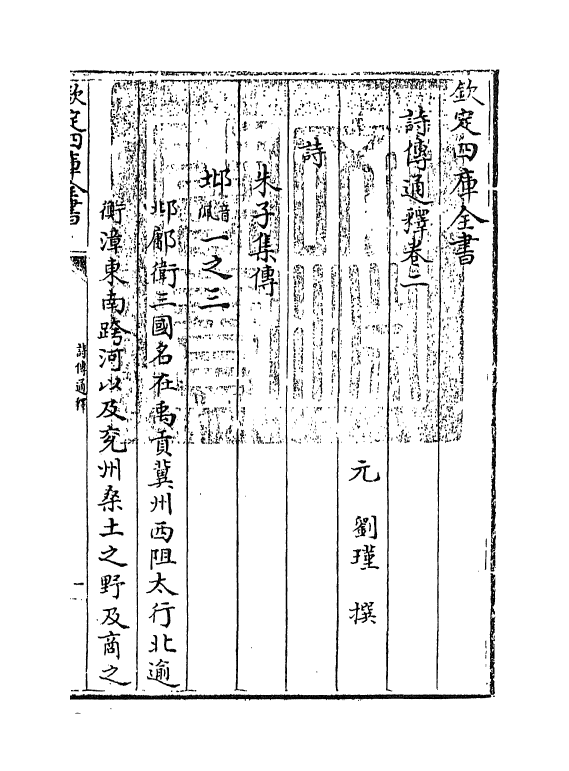 欽定四庫全書
詩傳通釋卷二
元 劉瑾 撰
詩
朱子集傳
邶音佩一之三
邶鄘衛三國名在禹貢冀州西阻太行北逾
衡漳東南跨河以及兖州桑土之野及商之
欽定四庫全書
詩傳通釋
一